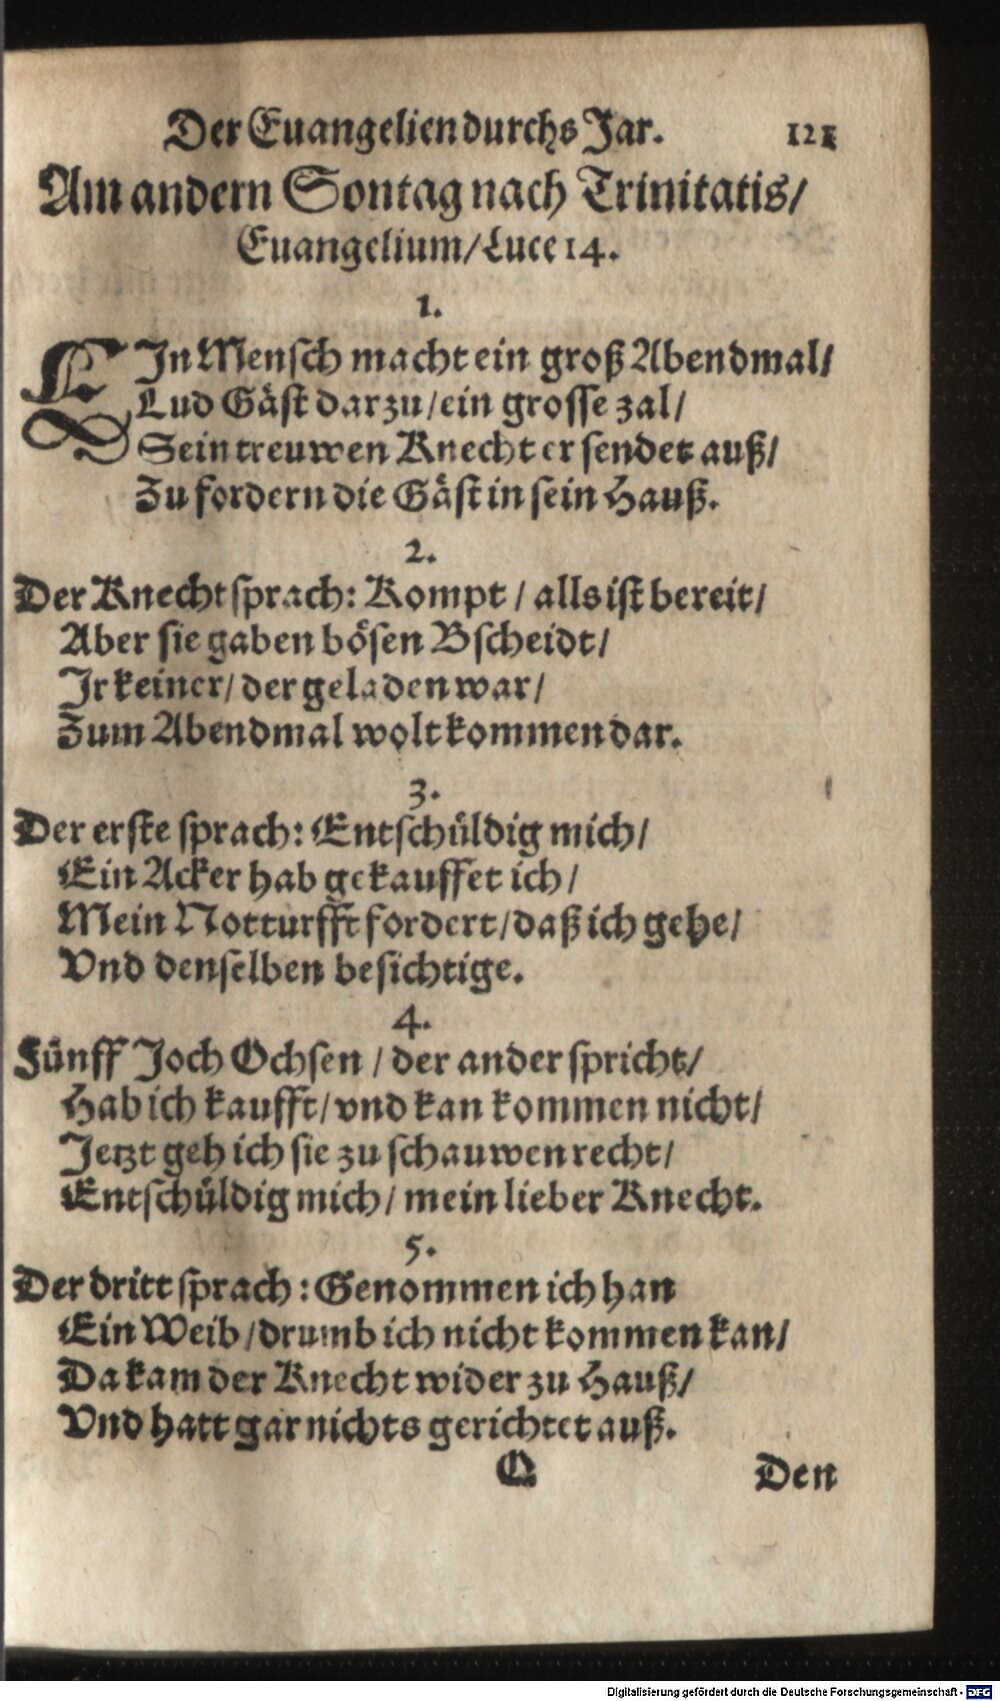 Der Euangelien durchs Jar. 121
Am andern Sontag nach Trinitatis/
Euangelium/Luce 14.
1.
EJn Mensch macht ein groß Abendmal/
Lud Gäst darzu/ein grosse zal/
Sein treuwen Knecht er sendet auß/
Zu fordern die Gäst in sein Hauß.
2.
Der Knecht sprach: Kompt / alls ist bereit/
Aber sie gaben bösen Bscheidt/
Jr keiner/ der geladen war/
Zum Abendmal wolt kommen dar.
3.
Der erste sprach: Entschüldig mich/
Ein Acker hab gekauffet ich/
Mein Notturfft fordert/daß ich gehe/
Vnd denselben besichtige.
4.
Fünff Joch Ochsen / der ander spricht/
Hab ich kaufft/ vnd kan kommen nicht/
Jetzt geh ich sie zu schauwen recht/
Entschüldig mich/ mein lieber Knecht.
5.
Der dritt sprach: Genommen ich han
Ein Weib/drumb ich nicht kommen kan/
Da kam der Knecht wider zu Hauß/
Vnd hatt gar nichts gerichtet auß.
Q Den
Digitalisierung gefördert durch die Deutsche Forschungsgemeinschaft - DFG